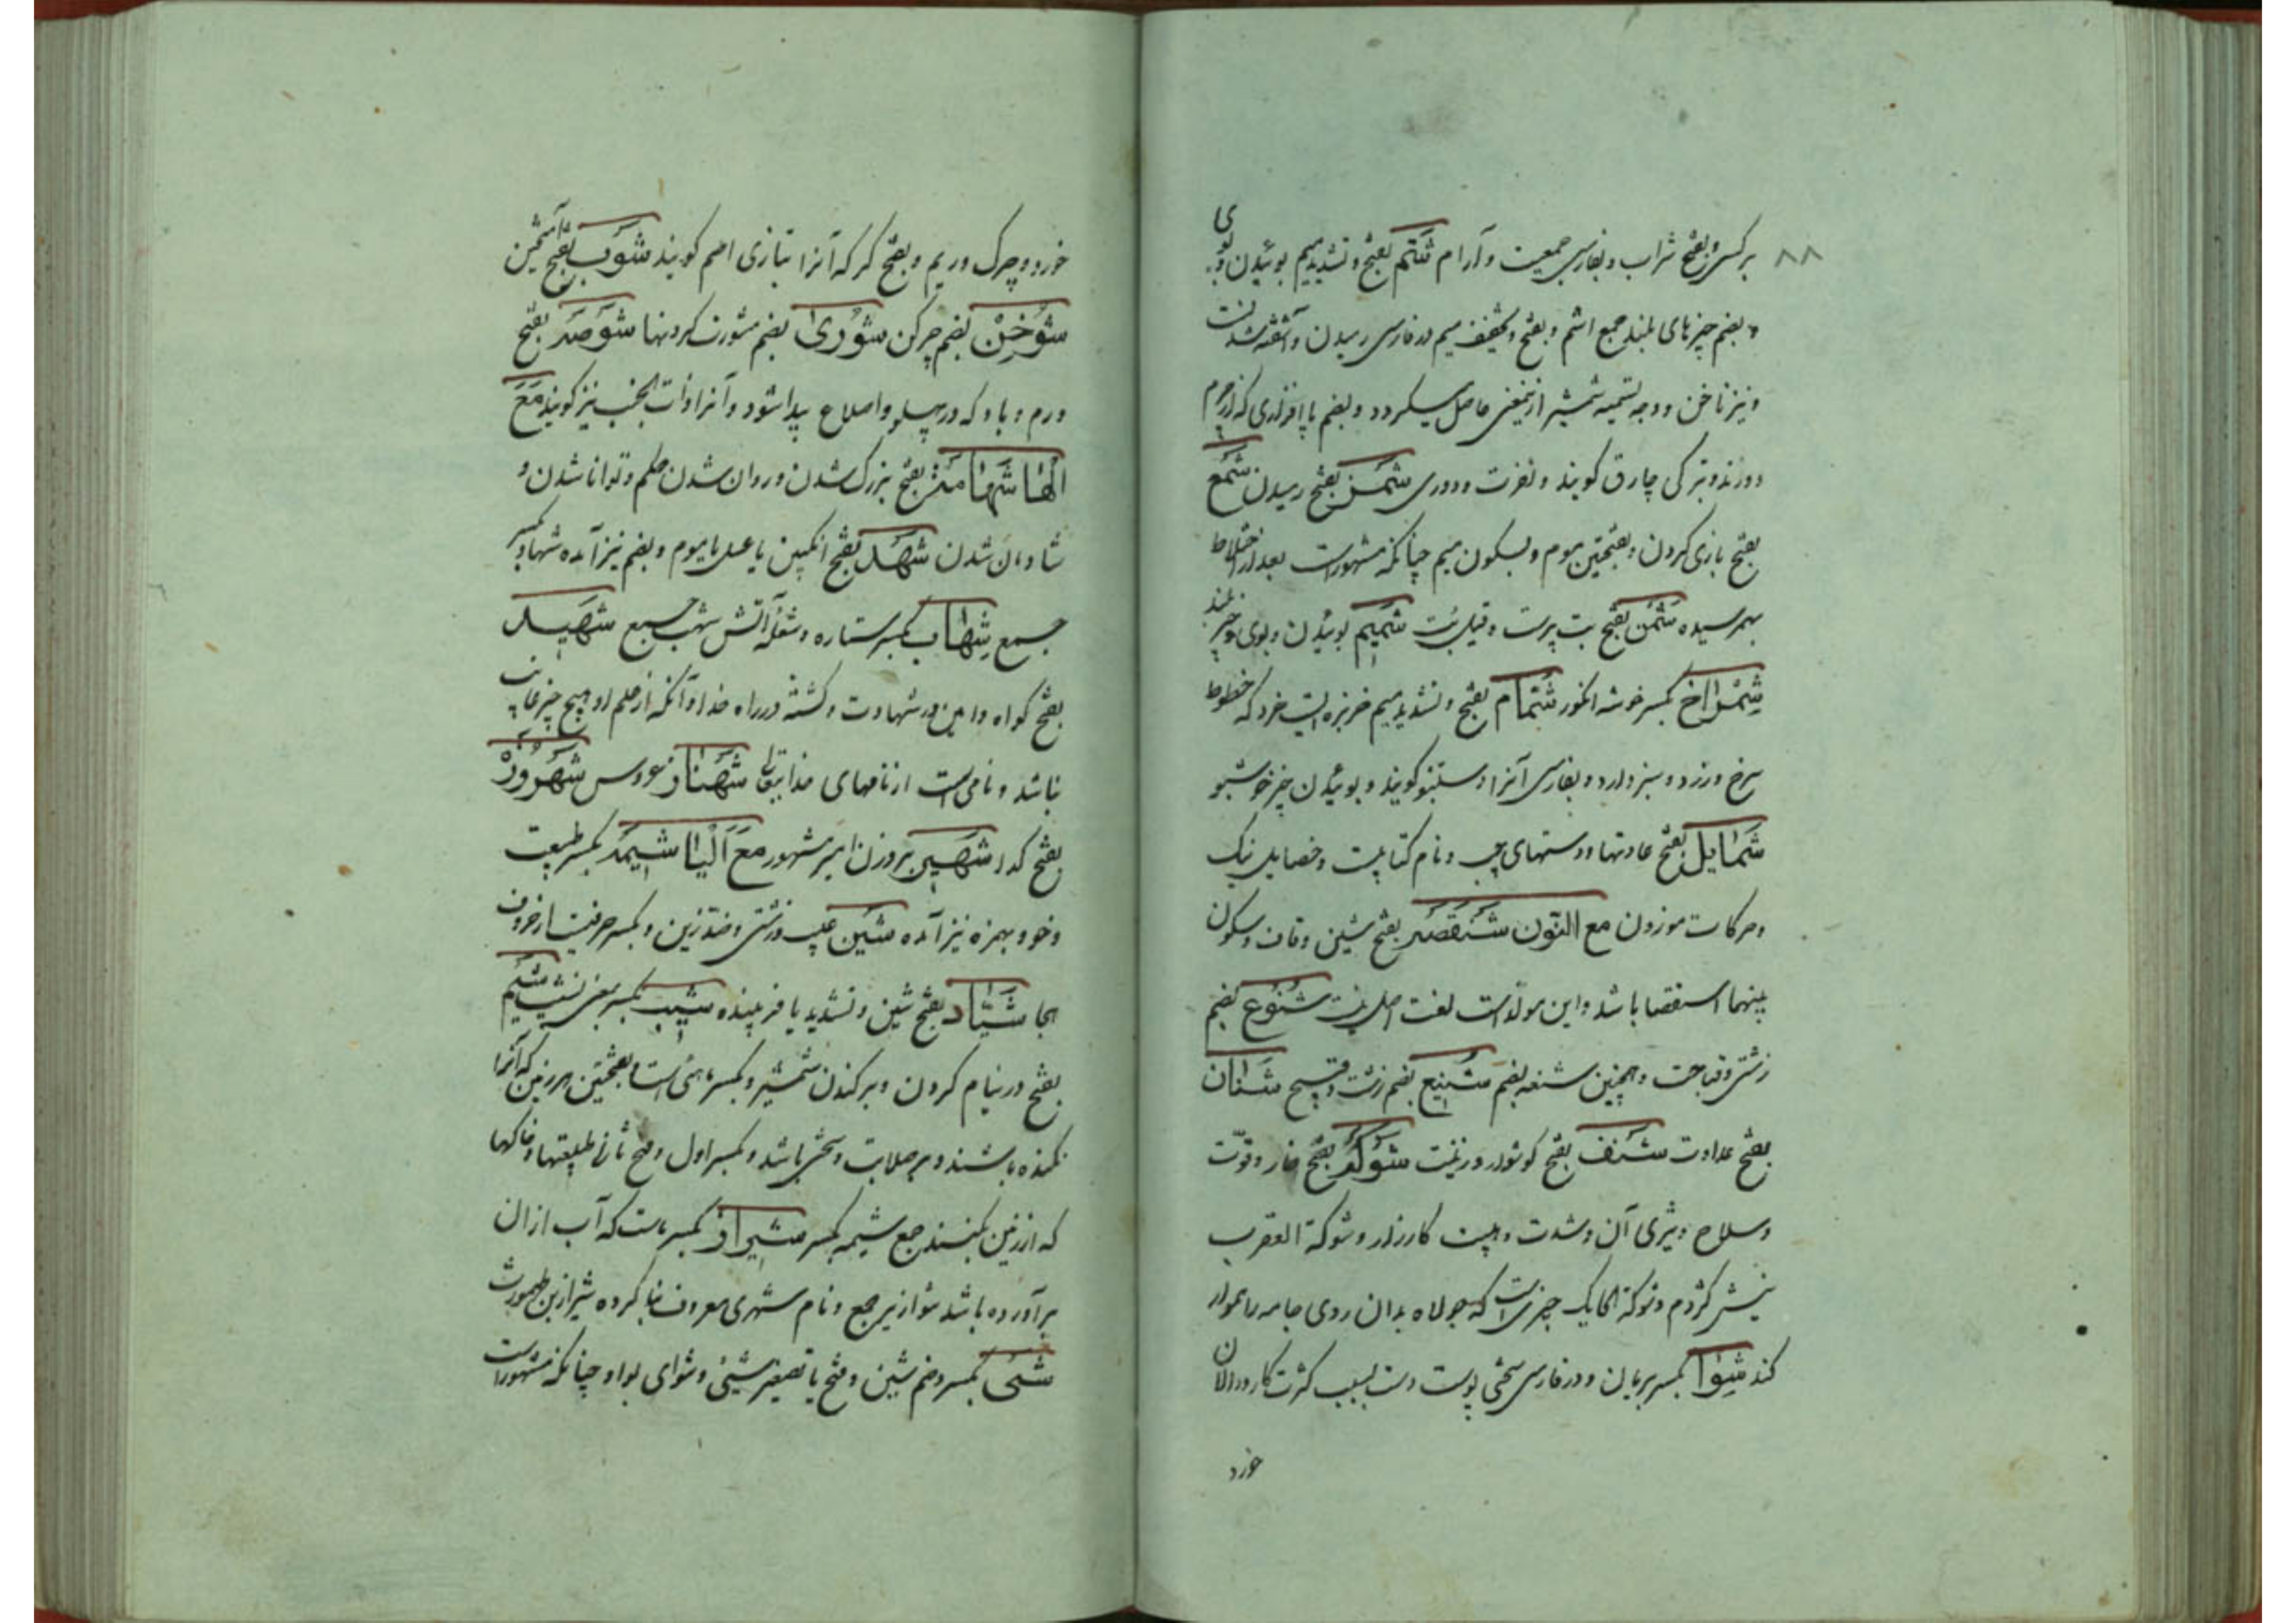 ۸۸
بر کسی و بفتح شراب و بفارسی جمعیت و آرام شَمّ بفتح و تشدید میم بوئیدن و بوی
و بضم چیزهای بلند جمع اشم و بفتح و تخفیف میم در فارسی رمیدن و آشفته شدنست
و نیز ناخن و وجه تسمیه شمشیر ازینمعنی حاصل میگردد و بضم پاافزاری که از چرم
دوزند و بترکی چارق گویند و نفرت و دوری شمز بفتح رمیدن شمع
بفتح بازی کردن و بفتحتین موم و بسکون میم چنانکه مشهور است بعد از اختلاط
بهمرسیده شمن بفتح بت پرست و قیل بت شمیم بوئیدن و بوی و چیز بلند
شِمراخ بکسر خوشه انگور شمّام بفتح و تشدید میم خربزه ایست خرد که خطوط
سرخ و زرد و سبز دارد و بفارسی آنرا دستنبو گویند و بوئیدن چیز خوشبو
شَمایل بفتح عادتها و دستهای چپ و نام کتابیست و خصایل نیک
و حرکات موزون مع النون شنقصه بفتح شین و قاف و سکون
بینهما استقصا باشد و این مولّد است لغت اصلی نیست شنوع بضم
زشتی و قباحت و همچنین شنعه بضم شنیع بضم زشت و قبیح شنان
بفتح عداوت شنف بفتح گوشوار و زینت شوکة بفتح خار و قوّت
و سلاح و تیزی آن و شدت و هیبت کارزار و شوکة العقرب
نیش کژدم و شوکة الحایک چیزیست که جولاه بدان روی جامه را هموار
کند شِوا بکسر بریان و در فارسی سختی پوست دست بسبب کثرت کار و در الان
خورد
خورد و چرک و ریم و بفتح کر که آنرا بتازی اصم گویند شَوب بفتح آمیختن
شوخِن بضم چرکن شوری بضم مشورت کردنها شوصه بفتح
ورم و باد که در پهلو و اضلاع پیدا شود و آنرا ذات الجنب نیز گویند مع
الها شَهامة بفتح بزرگ شدن و روان شدن حکم و توانا شدن و
شادمان شدن شهد بفتح انگبین یا عسل با موم و بضم نیز آمده شهاد بکسر
جمع شِهاب بکسر ستاره و شعله آتش شهب جمع شهید
بفتح گواه و امین در شهادت و کشته در راه خدا و آنکه از علم او هیچ چیز غایب
نباشد و نامی است از نامهای خدایتعالی شهناز عروس شهروز
بفتح گدا شهیر بر وزن امیر مشهور مع الیا شیمة بکسر طبیعت
و خو و بهمزه نیز آمده شین عیب و زشتی و ضد زین و بکسر حرفیست از حروف
هجا شَیّاد بفتح شین و تشدید یا فریبنده شیب بکسر بمعنی نشیب شیم
بفتح در نیام کردن و برکندن شمشیر و بکسر ماهی است و بفتحتین هر زمین که آنرا
نکنده باشند و بر صلابت و سختی باشد و بکسر اول و فتح ثانی طبیعتها و خاکها
که از زمین بکنند جمع شیمه بکسر شیراز بکسر ماست که آب از آن
برآورده باشد شواریز جمع و نام شهری معروف بنا کرده شیراز بن طهمورث
شئی بکسر و ضم شین و فتح یا تصغیر شیئی و شوای بواو چنانکه مشهور است